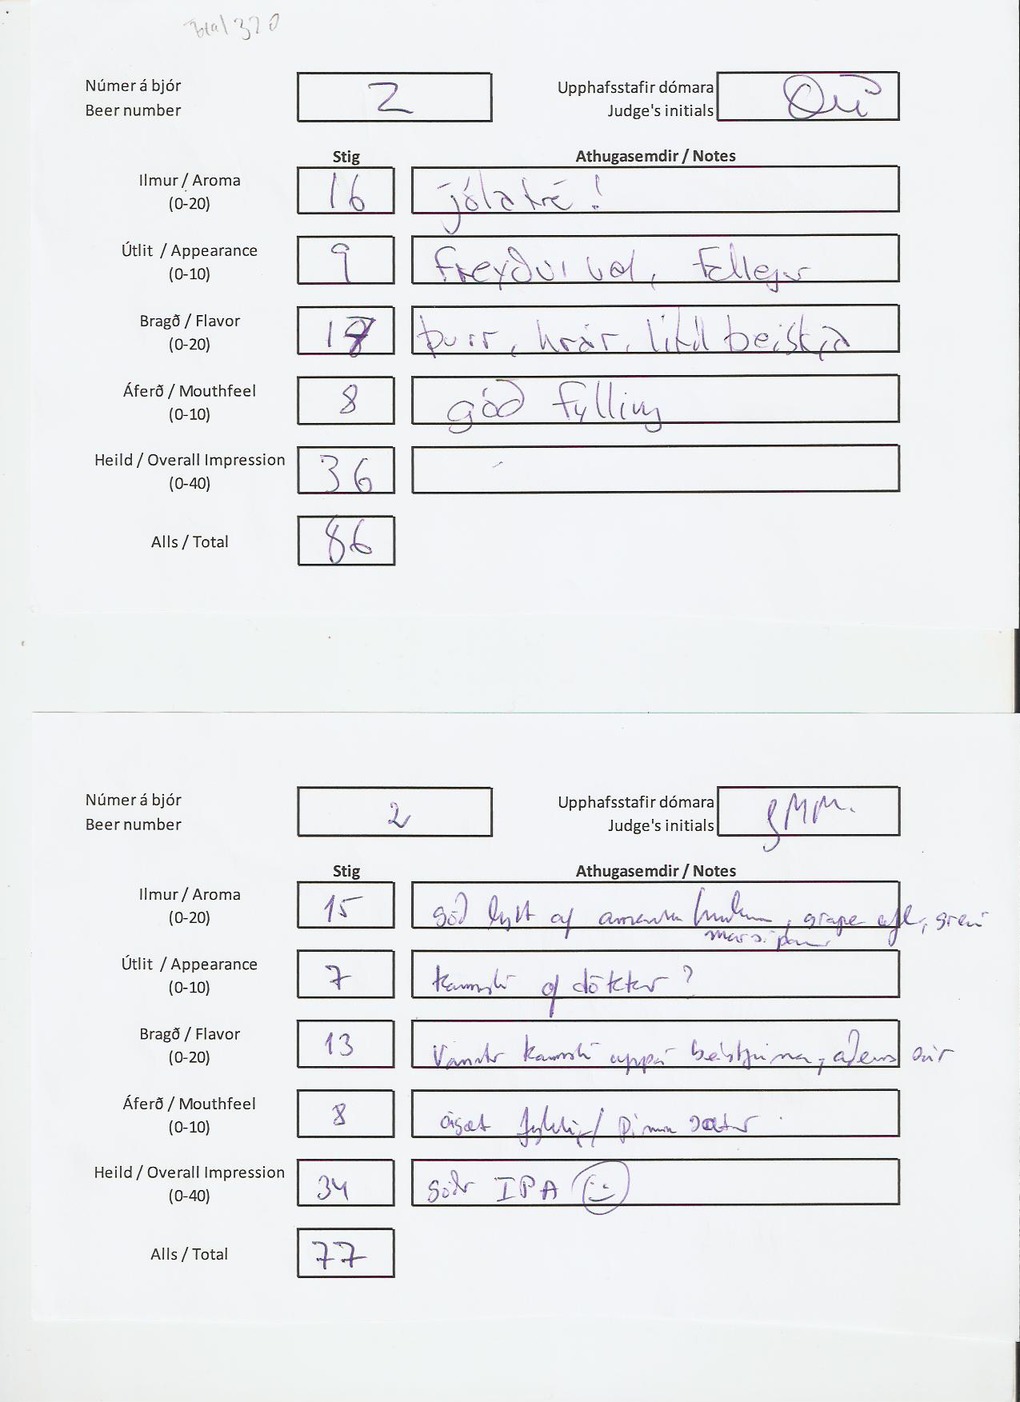 Númer á bjór
Beer number
2
Upphafsstafir dómara
Judge's initials
Stig
Athugasemdir / Notes
Ilmur / Aroma
(0-20)
16
jólatré!
Útlit / Appearance
(0-10)
9
freyðir vel, fallegur
Bragð / Flavor
(0-20)
17
þurr, hrár, lítil beiskja
Áferð / Mouthfeel
(0-10)
8
góð fylling
Heild / Overall Impression
(0-40)
36
Alls / Total
86
Númer á bjór
Beer number
2
Upphafsstafir dómara
Judge's initials
gMM.
Stig
Athugasemdir / Notes
Ilmur / Aroma
(0-20)
15
góð lykt af humlum, grape, greni
marsipan
Útlit / Appearance
(0-10)
7
kannski of dökkur ?
Bragð / Flavor
(0-20)
13
Vantar kannski uppá beiskjuna, aðeins súr
Áferð / Mouthfeel
(0-10)
8
ágæt fylling / pínu sætur
Heild / Overall Impression
(0-40)
34
góðr IPA
Alls / Total
77